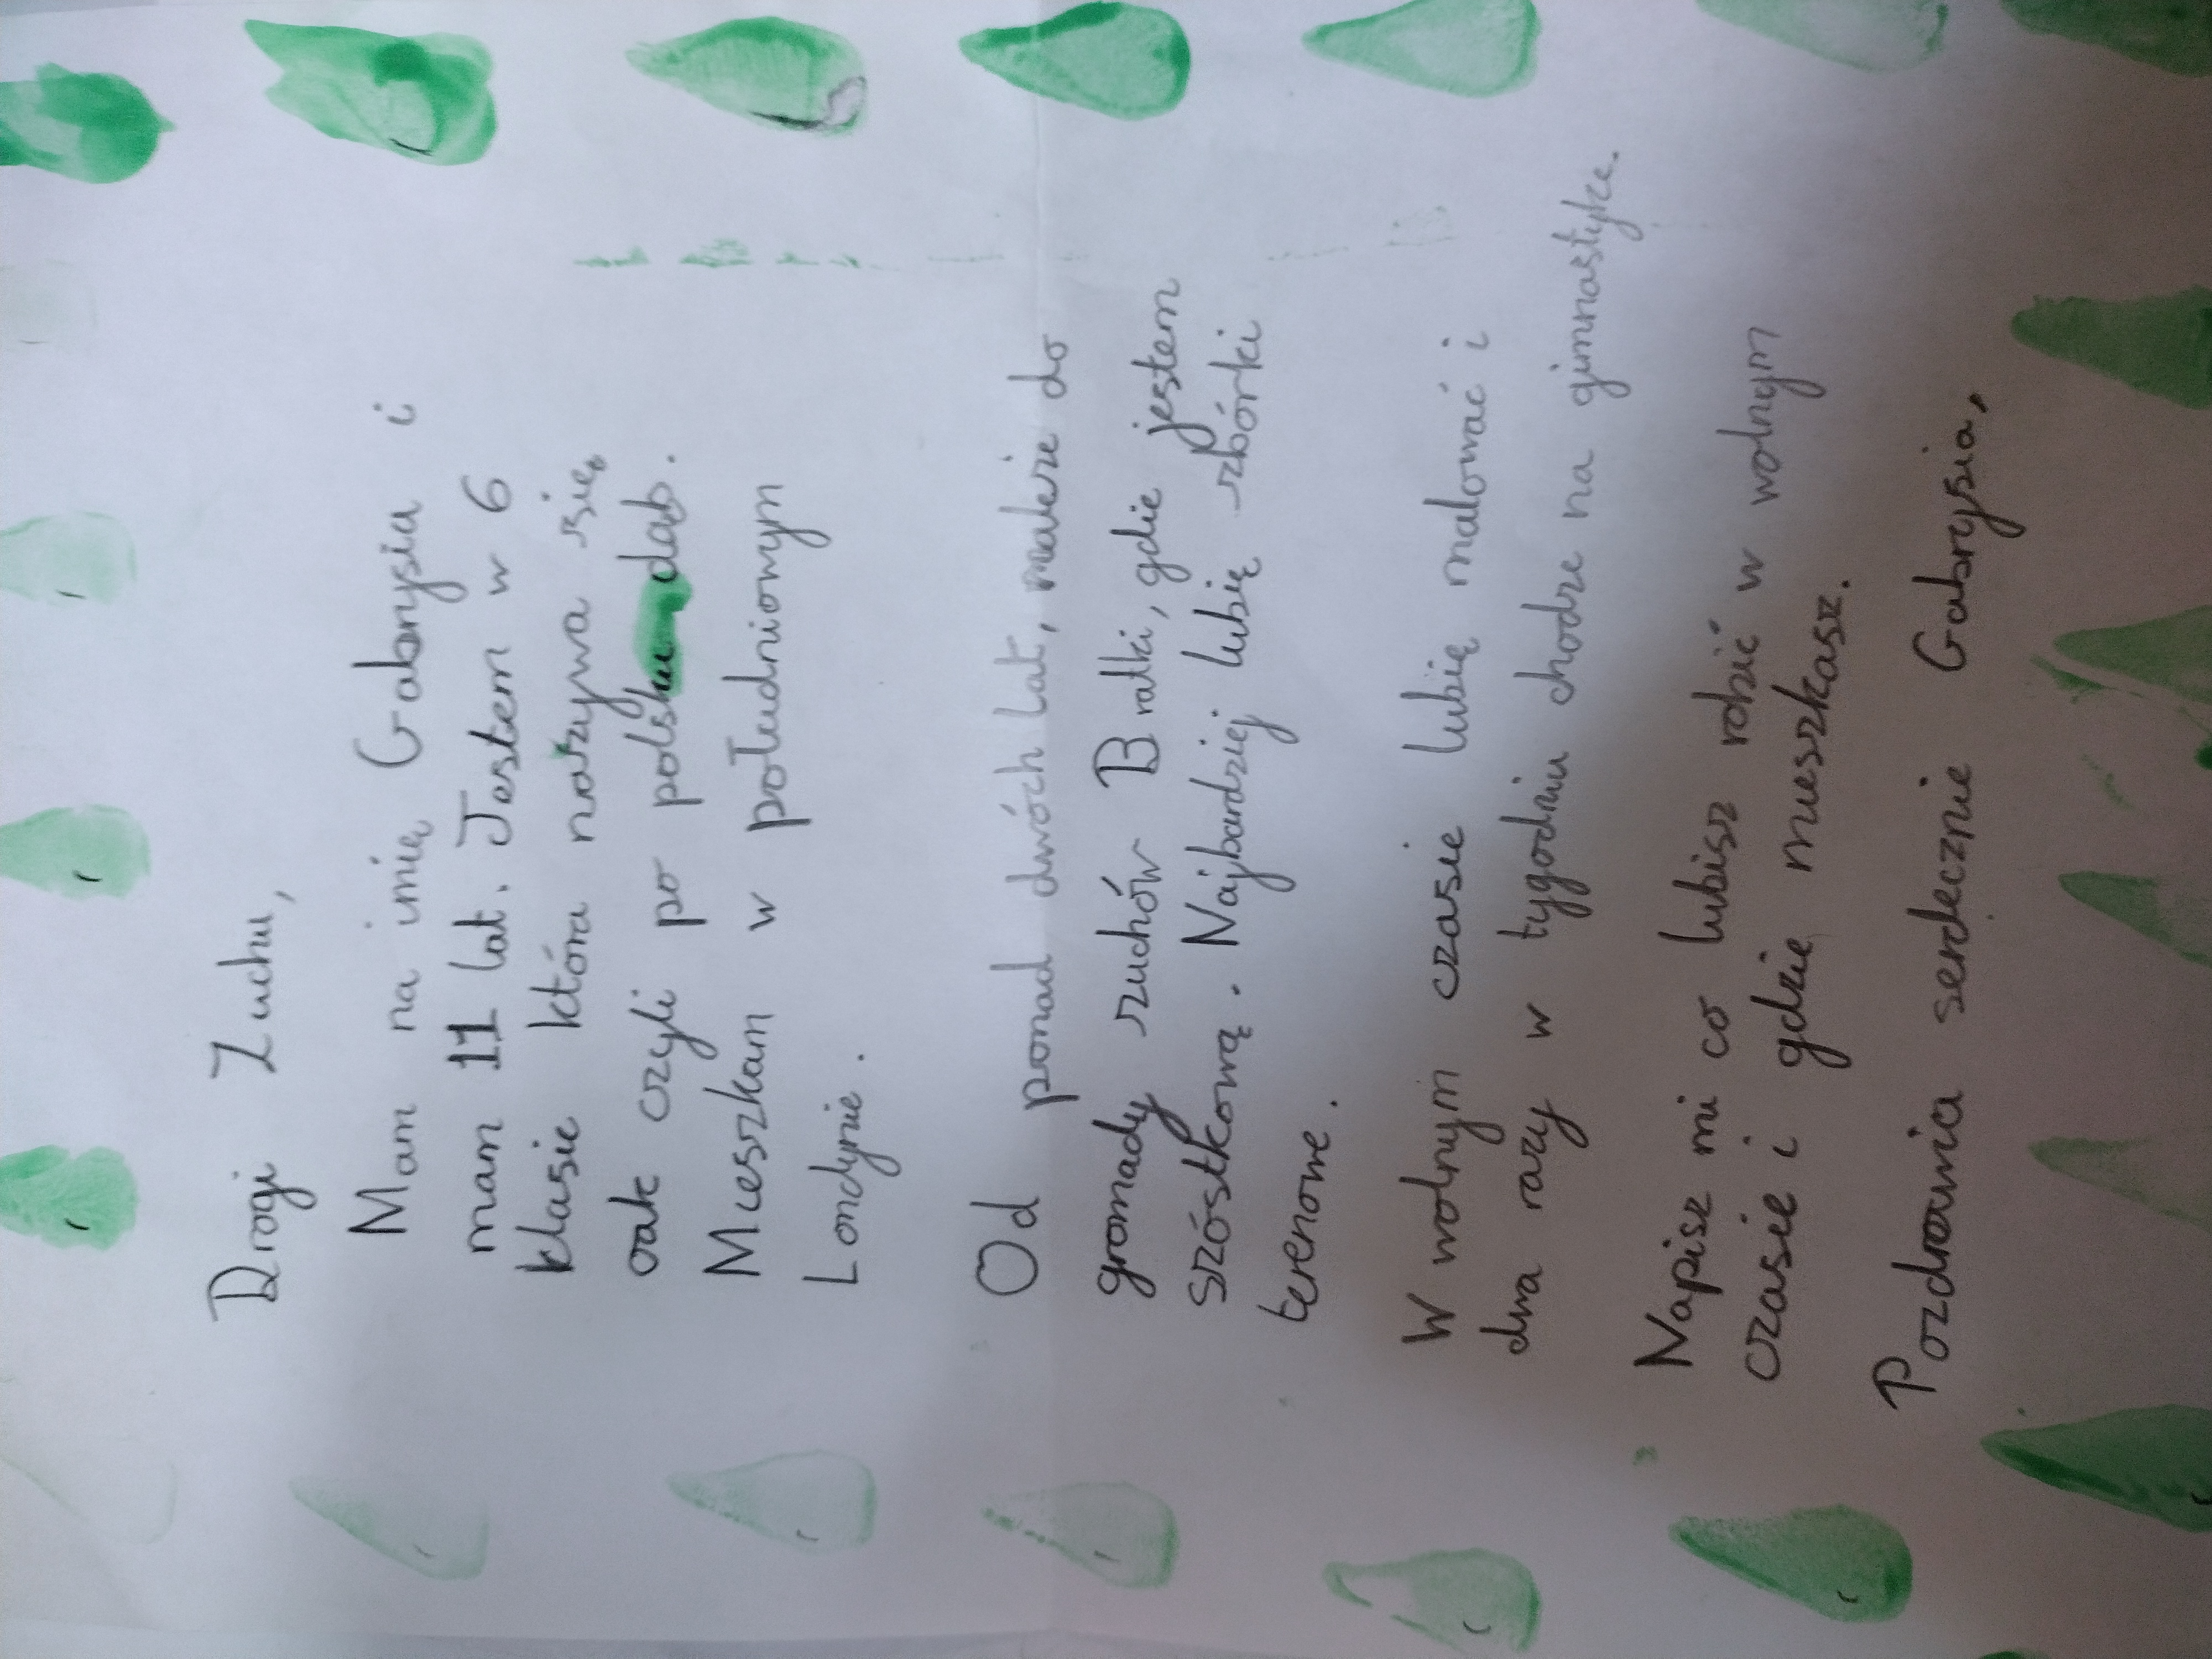 Drogi Zuchu,
Mam na imię Gabrysia i
mam 11 lat. Jestem w 6
klasie która nazywa się
oak czyli po polsku dąb.
Mieszkam w południowym
Londynie.
Od ponad dwóch lat, należe do
gromady zuchów Bratki, gdie jestem
szóstkową. Najbardziej lubię zbórki
terenowe.
W wolnym czasie lubię malować i
dwa razy w tygodniu chodze na gimnastyke.
Napisz mi co lubisz robić w wolnym
czasie i gdzie mieszkasz.
Pozdrowia serdecznie Gabrysia,